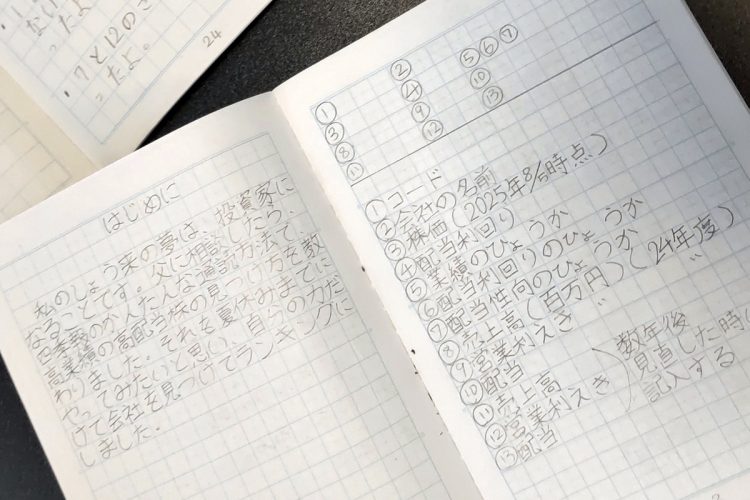 ったよ。
7と12のさ
ったよ。
24
はじめに
私のしょう来の夢は、投資家に
なることです。父に相談したら、
四季報のかんたんな通読方法で、
高業績の高配当株の見つけ方を教
わりました。それを夏休みまでに
やってみたいと思い、自らの力だ
けで会社を見つけてランキングに
しました。
① ② ⑤⑥⑦
③ ④ ⑩
⑧ ⑨ ⑬
⑪ ⑫
①コード
②会社の名前
③株価(2025年8/5時点)
④配当利回り
⑤業績のひょうか
⑥配当利回りのひょうか
⑦配当性向のひょうか
⑧売上高(百万円)(24年度)
⑨営業利えき 〃 〃
⑩配当
⑪売上高
⑫営業利えき
⑬配当
数年後
見直した時に
記入する